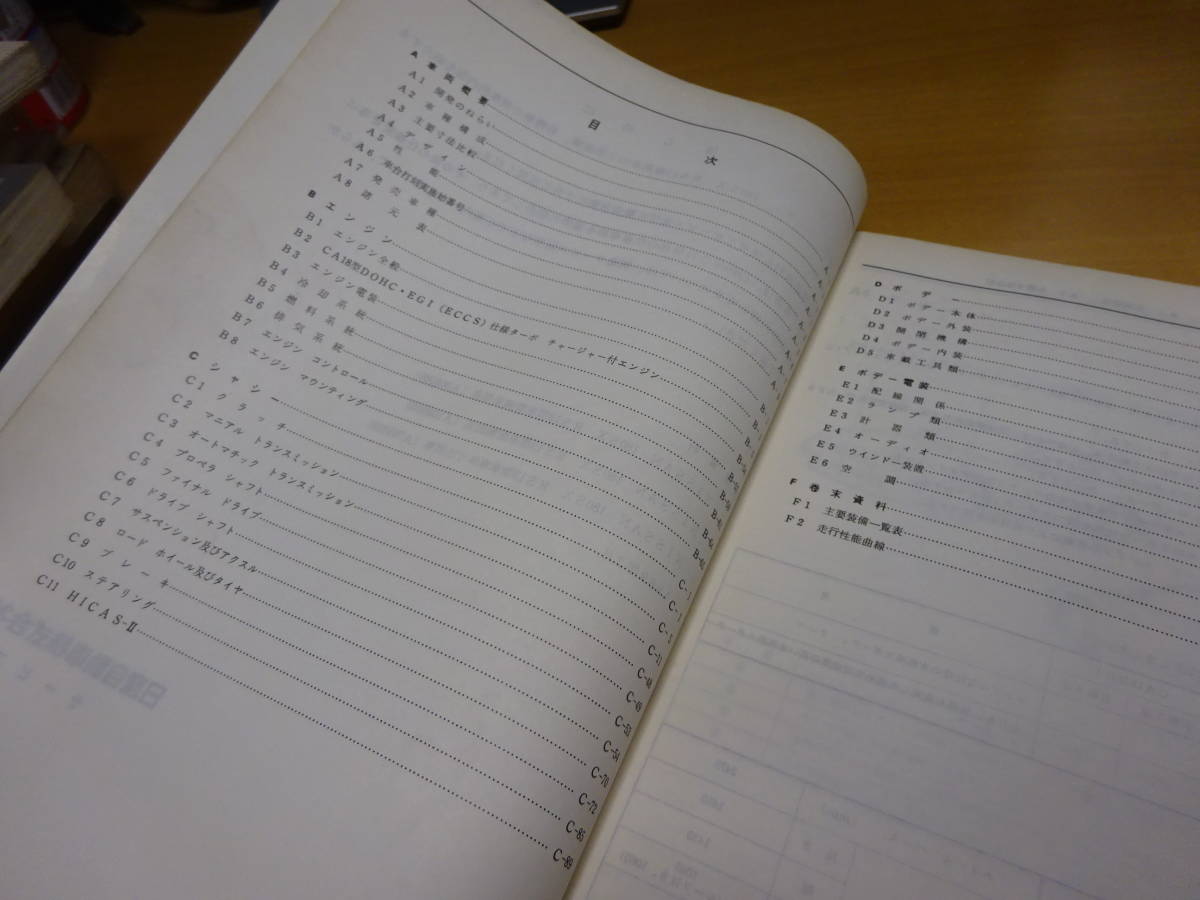 目 次
A 車両概要
A1 開発のねらい
A2 車種構成
A3 主要寸法比較
A4 デザイン
A5 性能
A6 車台打刻実施始番号
A7 発売車種
A8 諸元表
B エンジン
B1 エンジン全般
B2 CA18型DOHC・EGI(ECCS)仕様ターボ チャージャー付エンジン
B3 エンジン電装
B4 冷却系統
B5 燃料系統
B6 排気系統
B7 エンジン コントロール
B8 エンジン マウンティング
C シャシー
C1 クラッチ
C2 マニアル トランスミッション
C3 オートマチック トランスミッション
C4 プロペラ シャフト C-48
C5 ファイナル ドライブ C-49
C6 ドライブ シャフト C-53
C7 サスペンション及びアクスル C-54
C8 ロード ホイール及びタイヤ C-70
C9 ブレーキ C-72
C10 ステアリング C-85
C11 HICAS-II C-89
D ボデー
D1 ボデー本体
D2 ボデー外装
D3 開閉機構
D4 ボデー内装
D5 車載工具類
E ボデー電装
E1 配線関係
E2 ランプ類
E3 計器類
E4 オーディオ
E5 ウインドー装置
E6 空調
F 巻末資料
F1 主要装備一覧表
F2 走行性能曲線